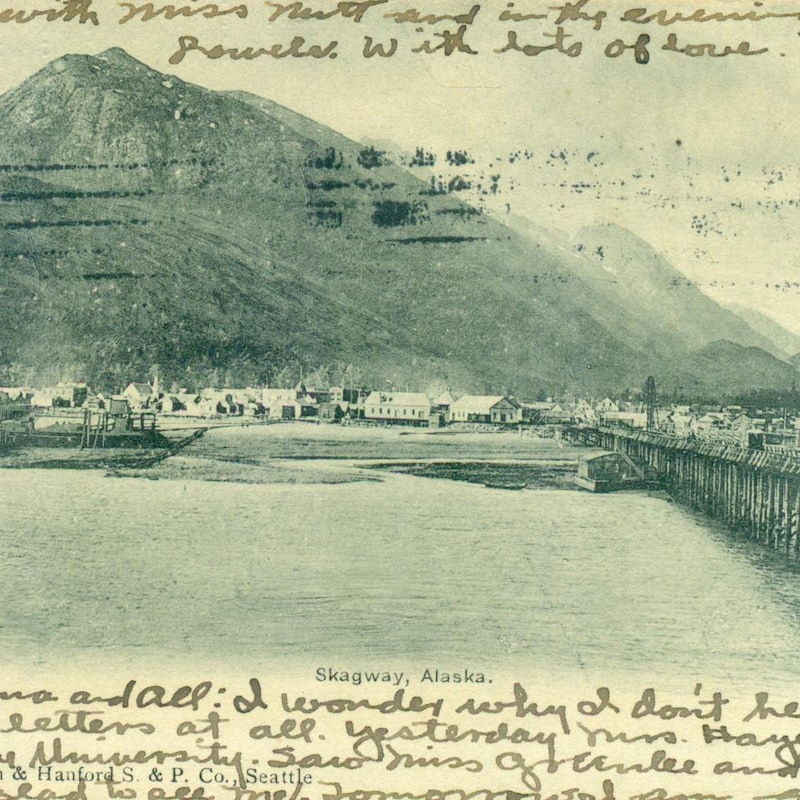 with Miss Nutt and in the evening
Powels. With lots of love.
Skagway, Alaska.
and All: I wonder why I don't he
letters at all. Yesterday Mrs. Haye
University. Saw Miss Greenlee and
& Hanford S. & P. Co., Seattle
me. Tomorrow I am